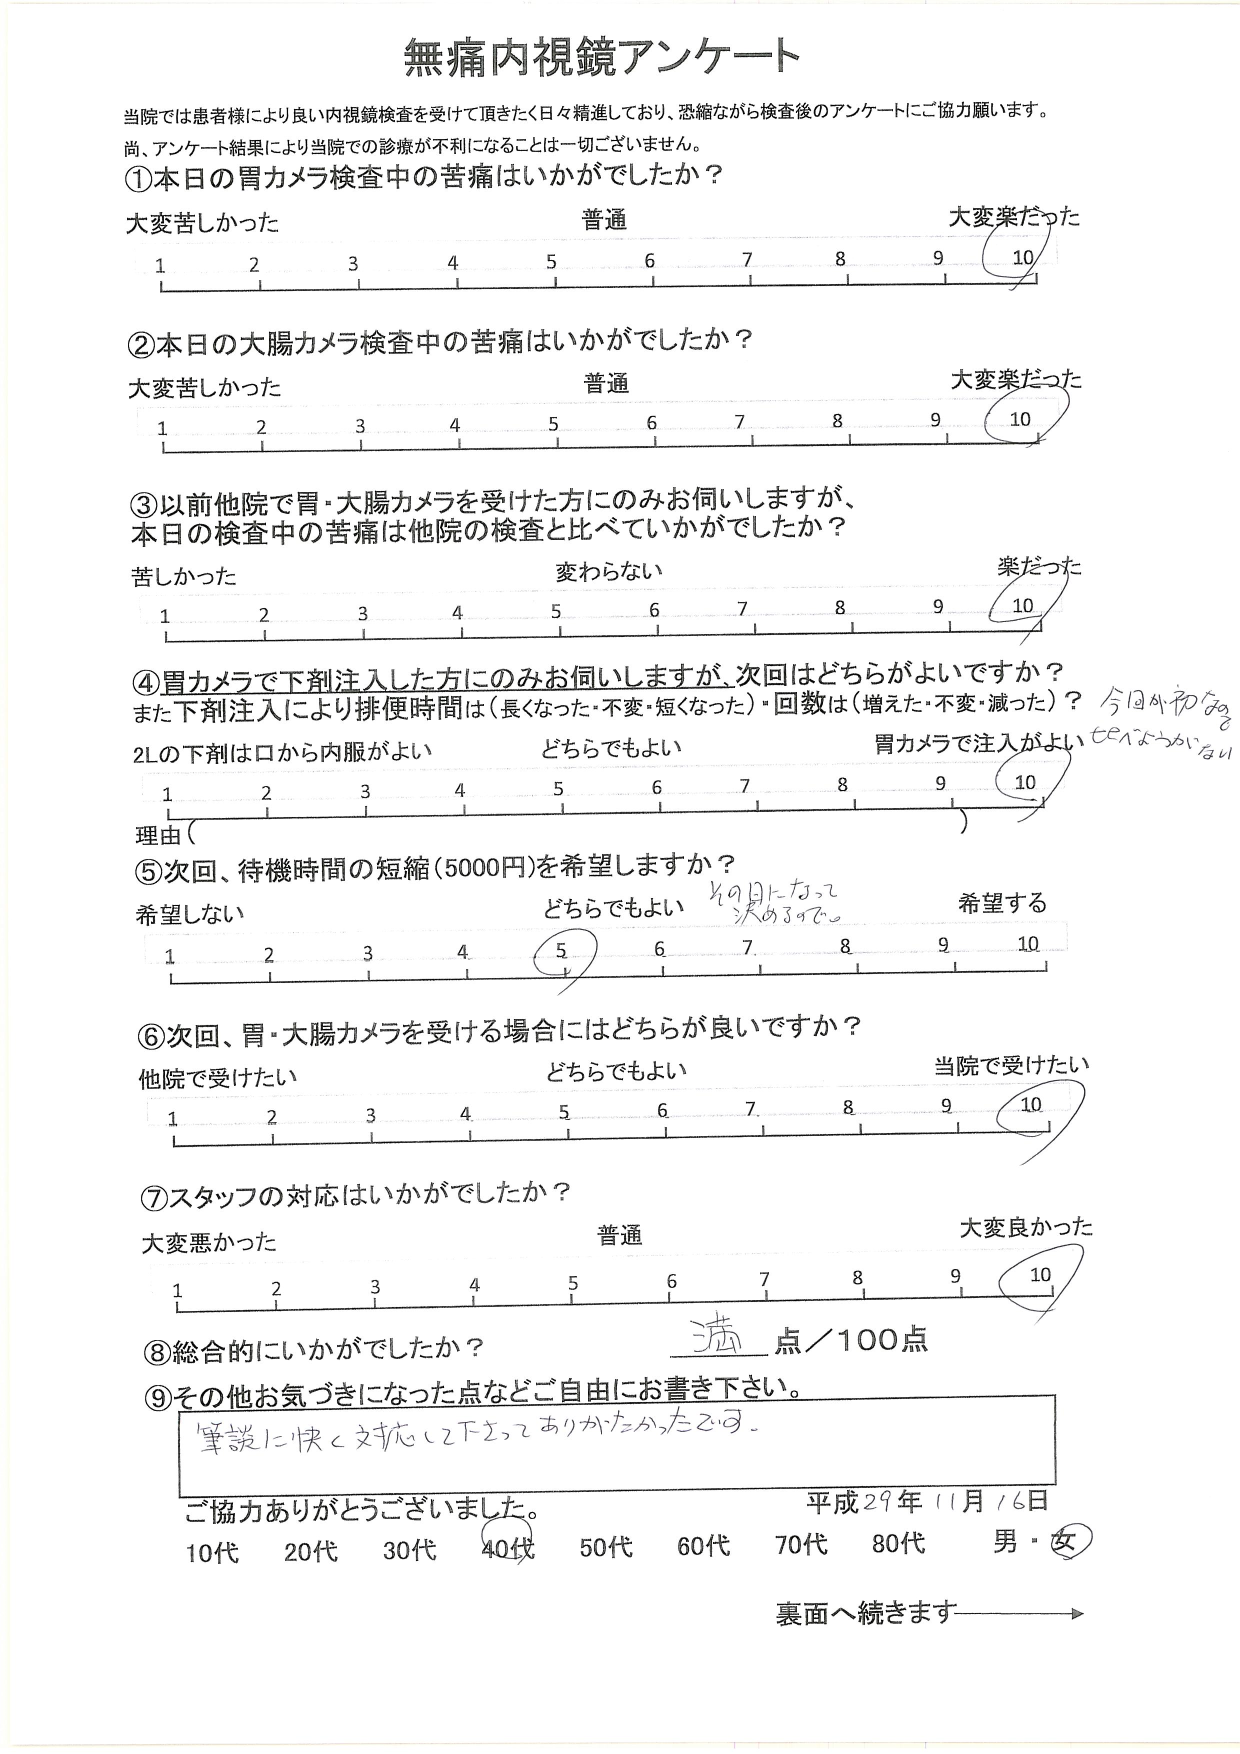 無痛内視鏡アンケート
当院では患者様により良い内視鏡検査を受けて頂きたく日々精進しており、恐縮ながら検査後のアンケートにご協力願います。
尚、アンケート結果により当院での診療が不利になることは一切ございません。
①本日の胃カメラ検査中の苦痛はいかがでしたか？
大変苦しかった 普通 大変楽だった
1 2 3 4 5 6 7 8 9 10
②本日の大腸カメラ検査中の苦痛はいかがでしたか？
大変苦しかった 普通 大変楽だった
1 2 3 4 5 6 7 8 9 10
③以前他院で胃・大腸カメラを受けた方にのみお伺いしますが、
本日の検査中の苦痛は他院の検査と比べていかがでしたか？
苦しかった 変わらない 楽だった
1 2 3 4 5 6 7 8 9 10
④胃カメラで下剤注入した方にのみお伺いしますが、次回はどちらがよいですか？
また下剤注入により排便時間は（長くなった・不変・短くなった）・回数は（増えた・不変・減った）？
今回が初なので
比べようがない
2Lの下剤は口から内服がよい どちらでもよい 胃カメラで注入がよい
1 2 3 4 5 6 7 8 9 10
理由（ ）
⑤次回、待機時間の短縮（5000円）を希望しますか？
希望しない どちらでもよい 希望する
その日になって
決めるので。
1 2 3 4 5 6 7 8 9 10
⑥次回、胃・大腸カメラを受ける場合にはどちらが良いですか？
他院で受けたい どちらでもよい 当院で受けたい
1 2 3 4 5 6 7 8 9 10
⑦スタッフの対応はいかがでしたか？
大変悪かった 普通 大変良かった
1 2 3 4 5 6 7 8 9 10
⑧総合的にいかがでしたか？ 満 点／100点
⑨その他お気づきになった点などご自由にお書き下さい。
筆談に快く対応して下さってありがたかったです。
ご協力ありがとうございました。 平成29年11月16日
10代 20代 30代 40代 50代 60代 70代 80代 男・女
裏面へ続きます